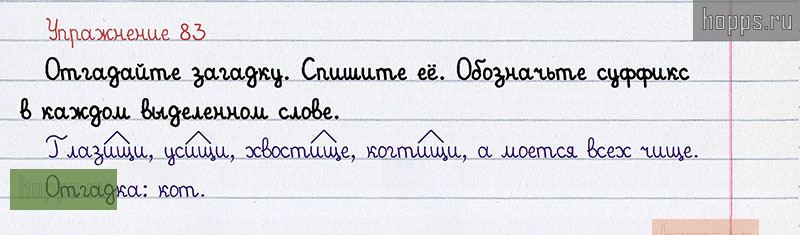 hopps.ru
Упражнение 83
Отгадайте загадку. Спишите её. Обозначьте суффикс
в каждом выделенном слове.
Глазищи, усищи, хвостище, когтищи, а моется всех чище.
Отгадка: кот.